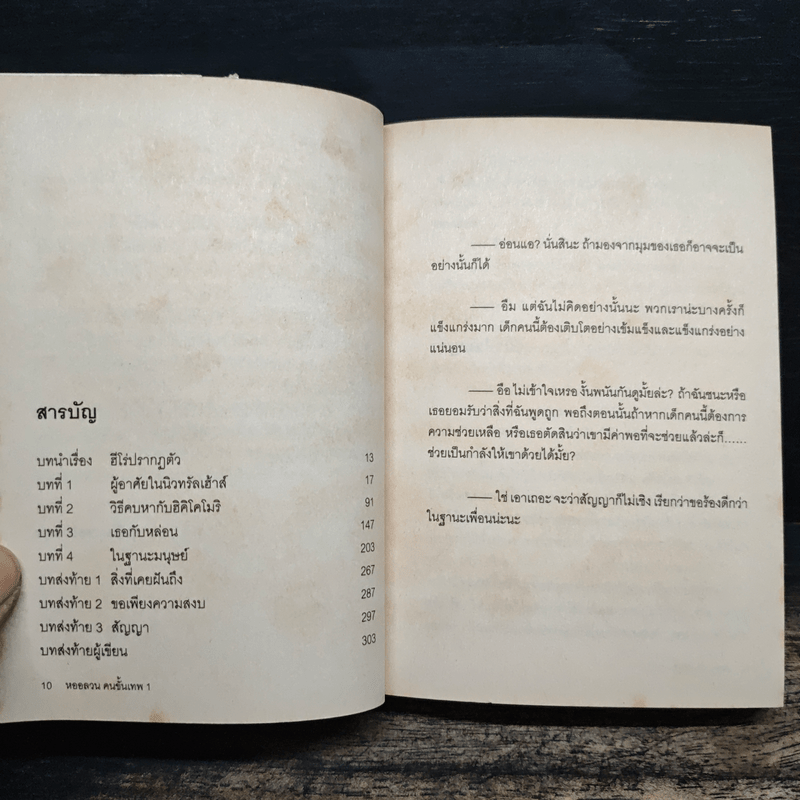 สารบัญ
บทนำเรื่อง ฮีโร่ปรากฏตัว 13
บทที่ 1 ผู้อาศัยในนิวทรัลเฮ้าส์ 17
บทที่ 2 วิธีคบหากับฮิคิโคโมริ 91
บทที่ 3 เธอกับหล่อน 147
บทที่ 4 ในฐานะมนุษย์ 203
บทส่งท้าย 1 สิ่งที่เคยฝันถึง 267
บทส่งท้าย 2 ขอเพียงความสงบ 287
บทส่งท้าย 3 สัญญา 297
บทส่งท้ายผู้เขียน 303
10 หออลวน คนขั้นเทพ 1
—— อ่อนแอ? นั่นสินะ ถ้ามองจากมุมของเธอก็อาจจะเป็น
อย่างนั้นก็ได้
—— อืม แต่ฉันไม่คิดอย่างนั้นนะ พวกเราน่ะบางครั้งก็
แข็งแกร่งมาก เด็กคนนี้ต้องเติบโตอย่างเข้มแข็งและแข็งแกร่งอย่าง
แน่นอน
—— อือ ไม่เข้าใจเหรอ งั้นพนันกันดูมั้ยล่ะ? ถ้าฉันชนะหรือ
เธอยอมรับว่าสิ่งที่ฉันพูดถูก พอถึงตอนนั้นถ้าหากเด็กคนนี้ต้องการ
ความช่วยเหลือ หรือเธอตัดสินว่าเขามีค่าพอที่จะช่วยแล้วล่ะก็......
ช่วยเป็นกำลังให้เขาด้วยได้มั้ย?
—— ใช่ เอาเถอะ จะว่าสัญญาก็ไม่เชิง เรียกว่าขอร้องดีกว่า
ในฐานะเพื่อนน่ะนะ